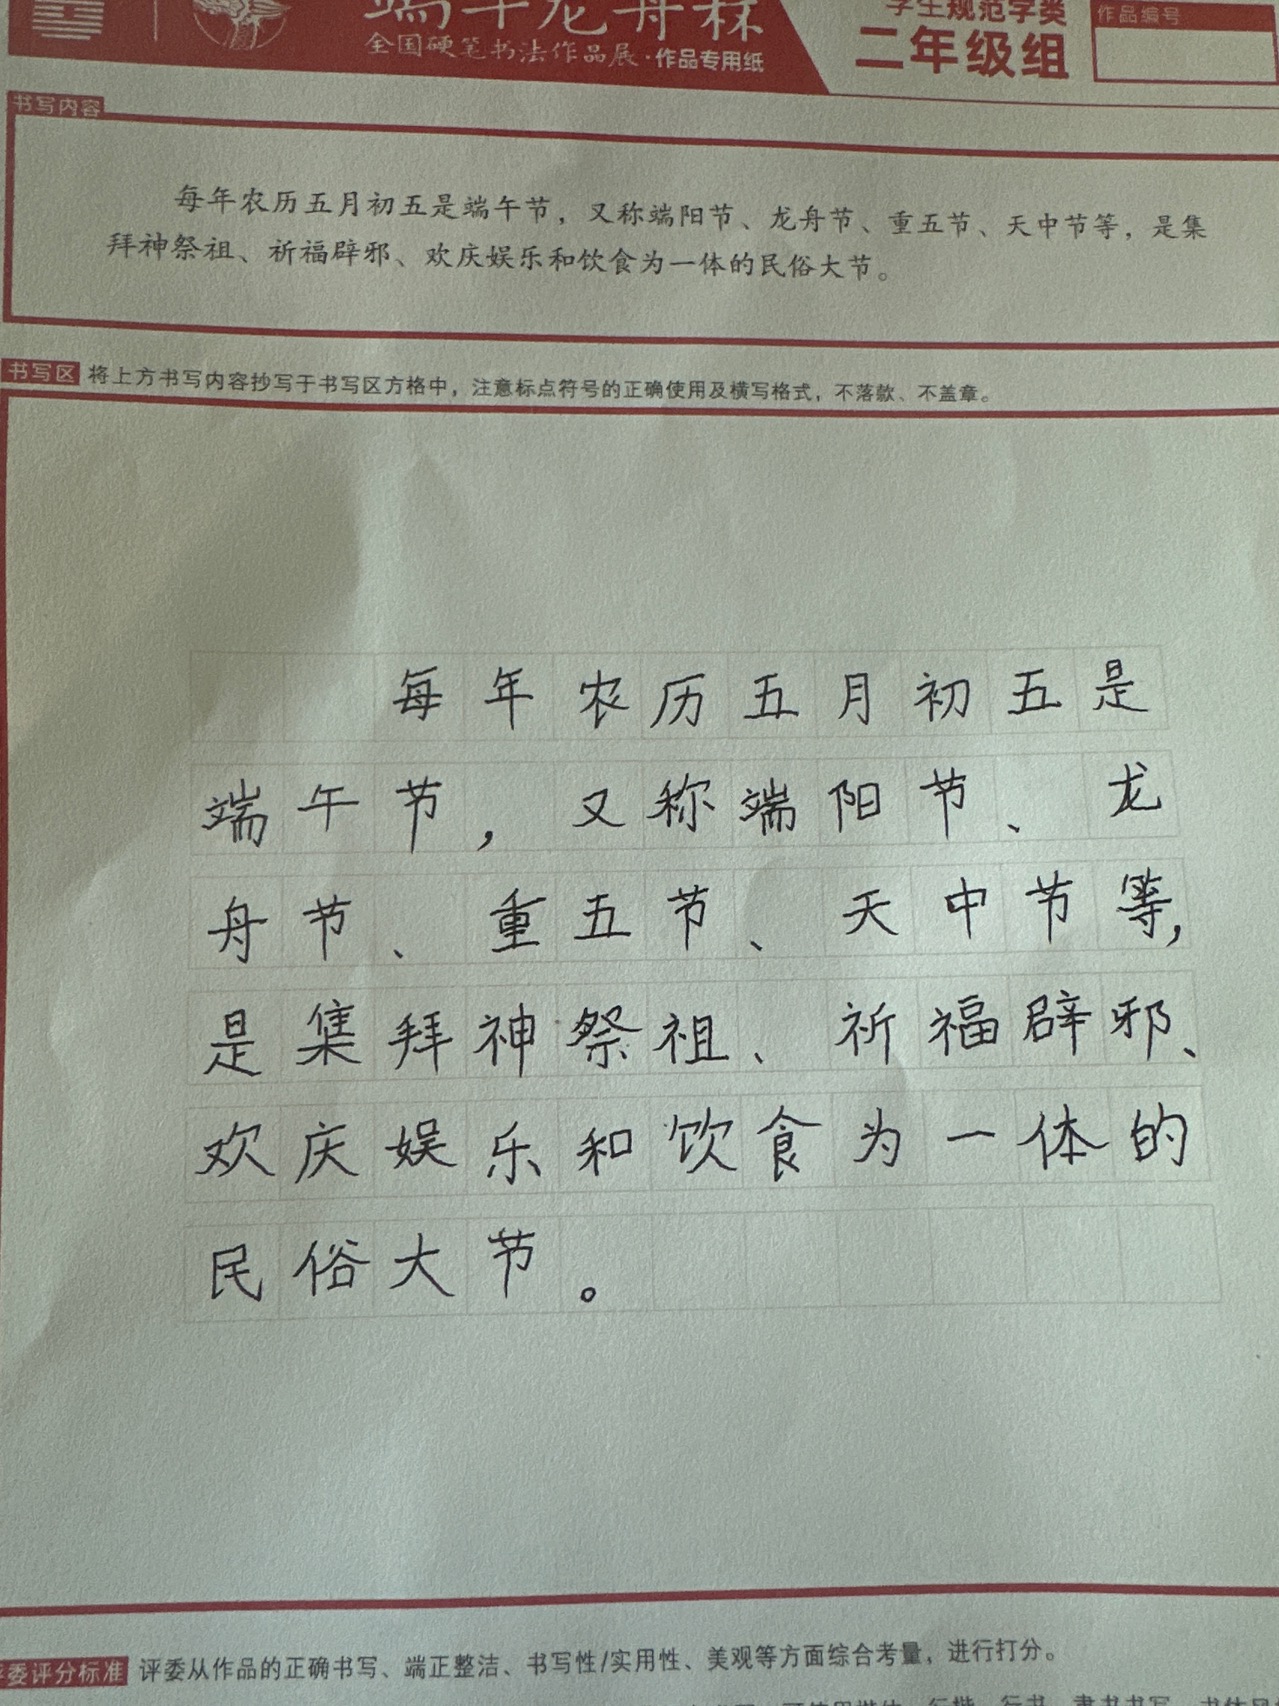 端午龙舟杯
全国硬笔书法作品展·作品专用纸
学生规范字类
二年级组
作品编号
书写内容
每年农历五月初五是端午节，又称端阳节、龙舟节、重五节、天中节等，是集
拜神祭祖、祈福辟邪、欢庆娱乐和饮食为一体的民俗大节。
书写区 将上方书写内容抄写于书写区方格中，注意标点符号的正确使用及横写格式，不落款、不盖章。
每年农历五月初五是
端午节，又称端阳节、龙
舟节、重五节、天中节等，
是集拜神祭祖、祈福辟邪、
欢庆娱乐和饮食为一体的
民俗大节。
评委评分标准 评委从作品的正确书写、端正整洁、书写性/实用性、美观等方面综合考量，进行打分。